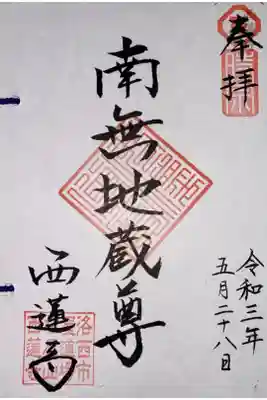 奉拝
令和三年
五月二十八日
南無地蔵尊
西蓮寺